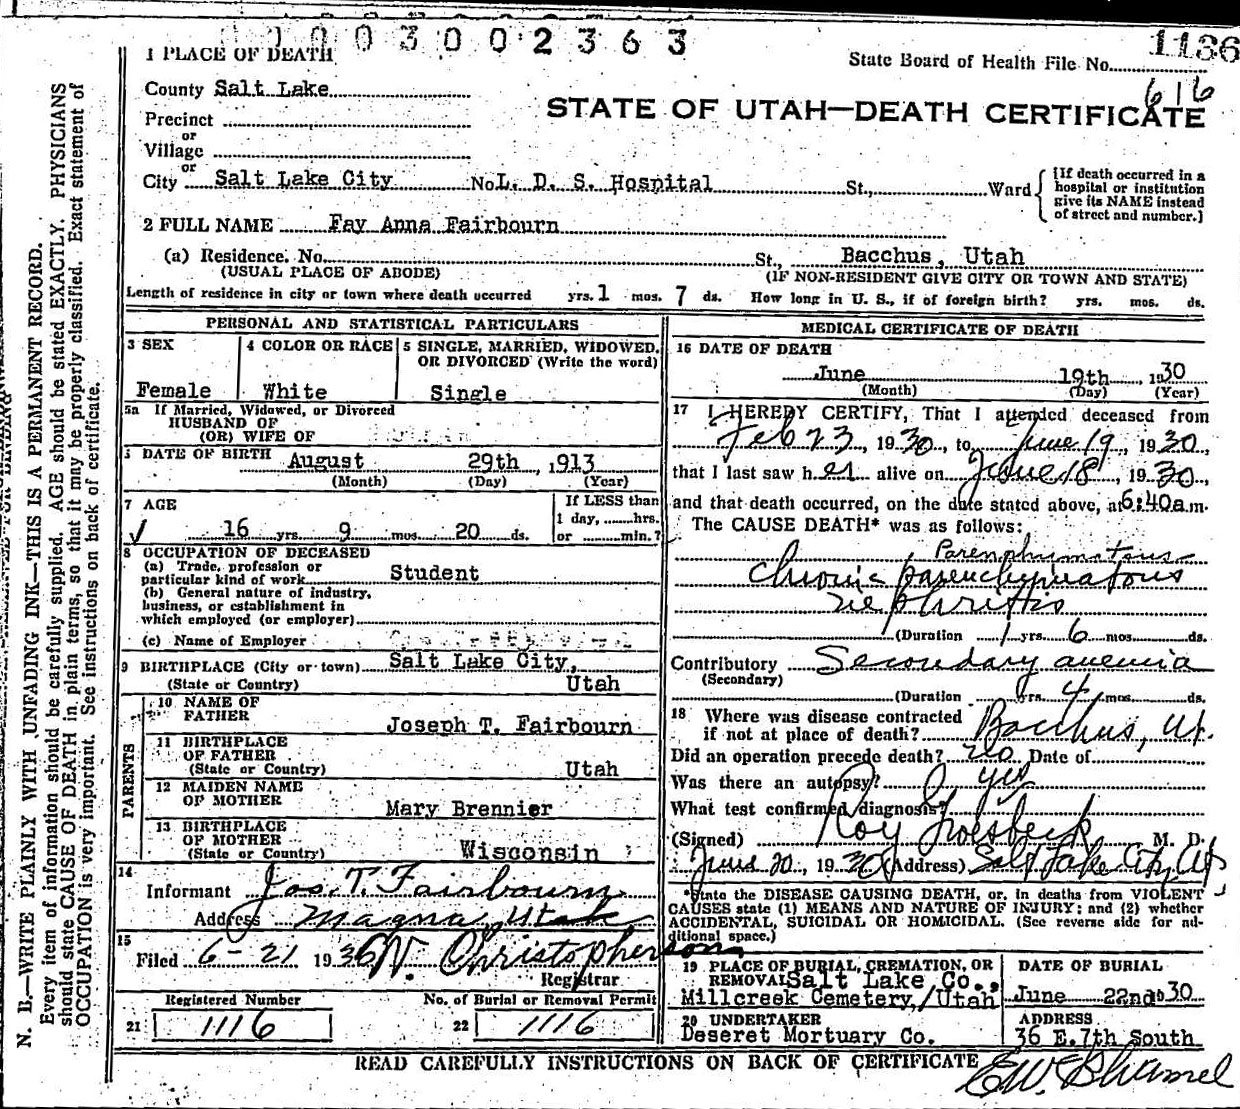 0003002363
1136
1 PLACE OF DEATH
State Board of Health File No.
616
County Salt Lake
STATE OF UTAH—DEATH CERTIFICATE
Precinct
or
Village
or
City Salt Lake City No. L. D. S. Hospital St., Ward
[If death occurred in a
hospital or institution
give its NAME instead
of street and number.]
2 FULL NAME Fay Anna Fairbourn
(a) Residence. No. St., Bacchus, Utah
(USUAL PLACE OF ABODE) (IF NON-RESIDENT GIVE CITY OR TOWN AND STATE)
Length of residence in city or town where death occurred yrs. 1 mos. 7 ds. How long in U. S., if of foreign birth? yrs. mos. ds.
PERSONAL AND STATISTICAL PARTICULARS
3 SEX
Female
4 COLOR OR RACE
White
5 SINGLE, MARRIED, WIDOWED,
OR DIVORCED (Write the word)
Single
5a If Married, Widowed, or Divorced
HUSBAND OF
(OR) WIFE OF
DATE OF BIRTH August 29th, 1913
(Month) (Day) (Year)
7 AGE
16 yrs. 9 mos. 20 ds.
If LESS than
1 day, hrs.
or min.?
8 OCCUPATION OF DECEASED
(a) Trade, profession or
particular kind of work Student
(b) General nature of industry,
business, or establishment in
which employed (or employer)
(c) Name of Employer
9 BIRTHPLACE (City or town) Salt Lake City,
(State or Country) Utah
PARENTS
10 NAME OF
FATHER Joseph T. Fairbourn
11 BIRTHPLACE
OF FATHER
(State or Country) Utah
12 MAIDEN NAME
OF MOTHER Mary Brennier
13 BIRTHPLACE
OF MOTHER
(State or Country) Wisconsin
14
Informant Jos. T. Fairbourn
Address Magna, Utah
15
Filed 6-21 1930 W. Christopherson
Registrar
Registered Number
21 1116
No. of Burial or Removal Permit
22 1116
MEDICAL CERTIFICATE OF DEATH
16 DATE OF DEATH
June 19th, 1930
(Month) (Day) (Year)
17 I HEREBY CERTIFY, That I attended deceased from
Feb 23, 1930, to June 19, 1930,
that I last saw her alive on June 18, 1930,
and that death occurred, on the date stated above, at 6:40 a.m.
The CAUSE DEATH* was as follows:
Chronic parenchymatous
nephritis
(Duration 1 yrs. 6 mos. ds.
Contributory Secondary anemia
(Secondary)
(Duration yrs. 4 mos. ds.
18 Where was disease contracted
if not at place of death? Bacchus, Ut.
Did an operation precede death? no Date of
Was there an autopsy? yes
What test confirmed diagnosis?
(Signed) Roy Groesbeck M. D.
June 20, 1930 (Address) Salt Lake City, Ut
*State the DISEASE CAUSING DEATH, or, in deaths from VIOLENT
CAUSES state (1) MEANS AND NATURE OF INJURY; and (2) whether
ACCIDENTAL, SUICIDAL OR HOMICIDAL. (See reverse side for ad-
ditional space.)
19 PLACE OF BURIAL, CREMATION, OR
REMOVAL Salt Lake Co.,
Millcreek Cemetery, Utah
DATE OF BURIAL
June 22nd 1930
20 UNDERTAKER
Deseret Mortuary Co.
ADDRESS
36 E. 7th South
READ CAREFULLY INSTRUCTIONS ON BACK OF CERTIFICATE
N. B.—WRITE PLAINLY WITH UNFADING INK—THIS IS A PERMANENT RECORD.
Every item of information should be carefully supplied. AGE should be stated EXACTLY. PHYSICIANS
should state CAUSE OF DEATH in plain terms, so that it may be properly classified. Exact statement of
OCCUPATION is very important. See instructions on back of certificate.